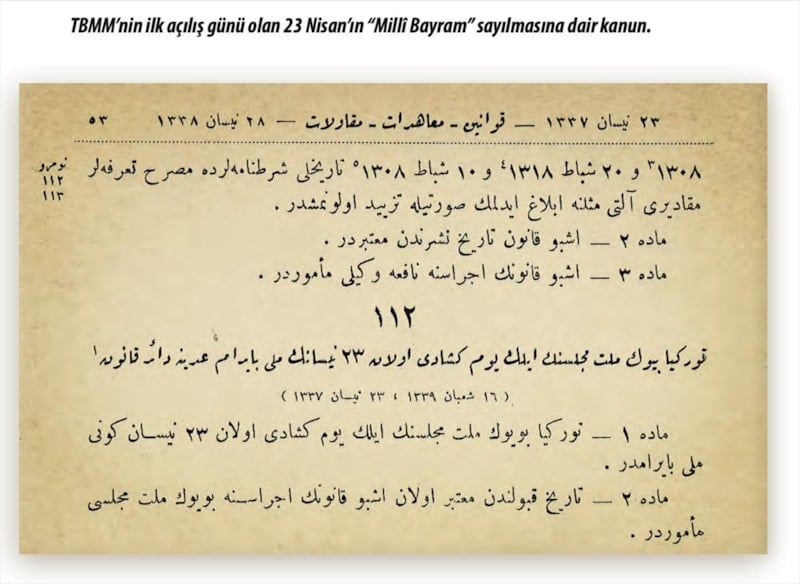 TBMM’nin ilk açılış günü olan 23 Nisan’ın “Millî Bayram” sayılmasına dair kanun.
٢٣ نيسان ١٣٣٧ — قوانين - معاهدات - مقاولات — ٢٨ نيسان ١٣٣٨ ٥٣
نومرو
١١٢
١١٣
١٣٠٨ ٣ و ٢٠ شباط ١٣١٨ ٤ و ١٠ شباط ١٣٠٨ ٥ تاريخلى شرطنامه‌لرده مصرح تعرفه‌لر
مقاديرى آلتى مثلنه ابلاغ ايدلمك صورتيله تزييد اولونمشدر .
ماده ٢ — اشبو قانون تاريخ نشرندن معتبردر .
ماده ٣ — اشبو قانونك اجراسنه نافعه وكيلى مأموردر .
١١٢
توركيا بيوك ملت مجلسنك ايلك يوم كشادى اولان ٢٣ نيسانك ملى بايرام عدينه دائر قانون ١
( ١٦ شعبان ١٣٣٩ ، ٢٣ نيسان ١٣٣٧ )
ماده ١ — توركيا بويوك ملت مجلسنك ايلك يوم كشادى اولان ٢٣ نيسان كونى
ملى بايرامدر .
ماده ٢ — تاريخ قبولندن معتبر اولان اشبو قانونك اجراسنه بويوك ملت مجلسى
مأموردر .